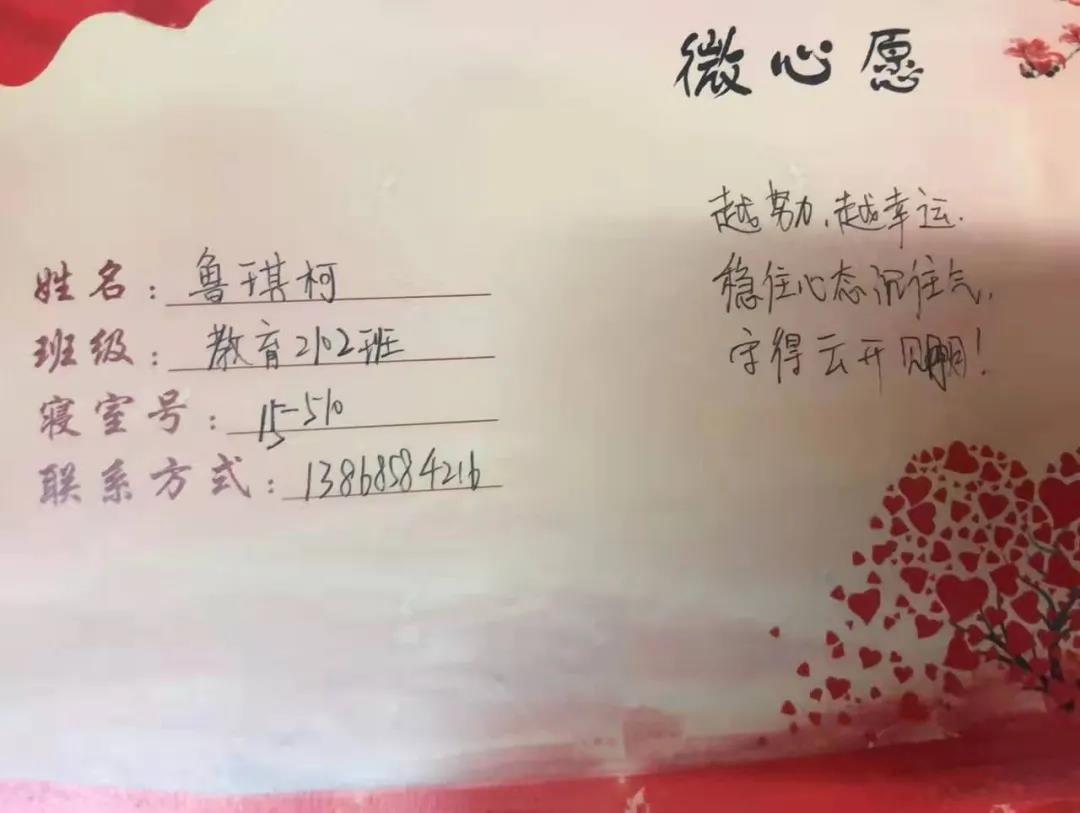 微心愿
越努力,越幸运.
稳住心态沉住气,
守得云开见月明!
姓名:鲁琪柯
班级:教育2102班
寝室号:15-510
联系方式:13868584216